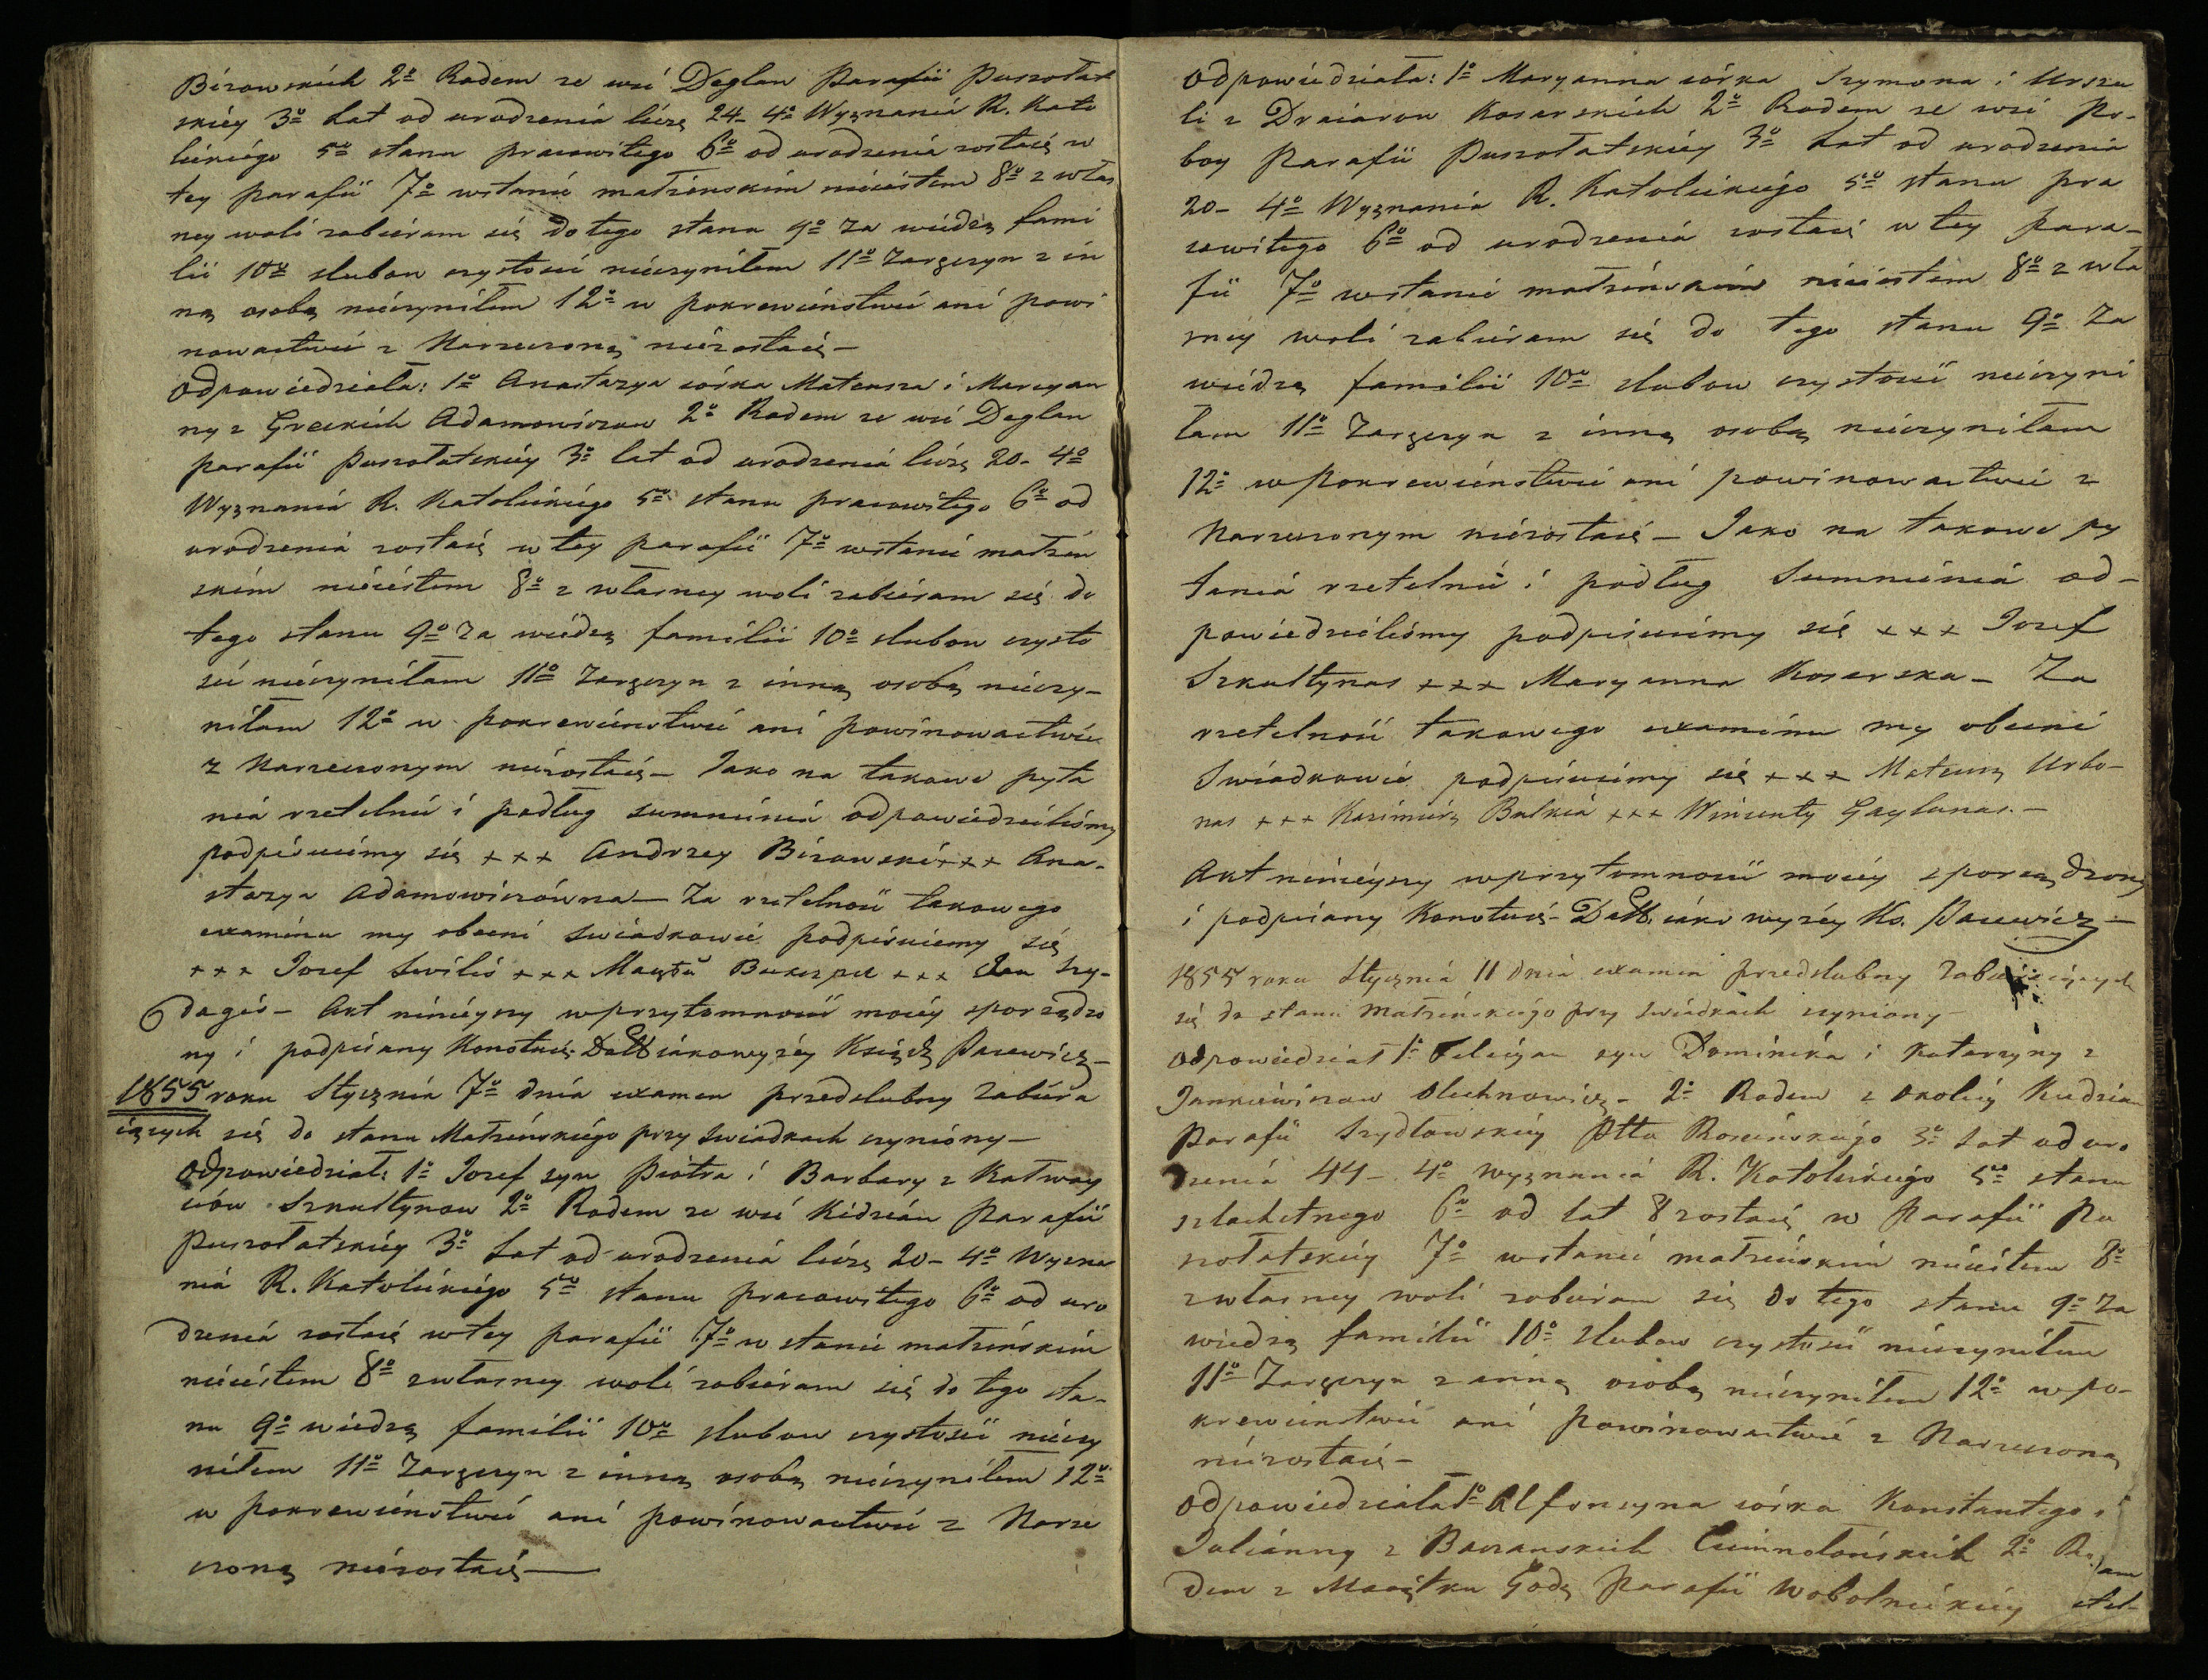 Birowskich 2º Rodem ze wsi Deglan Parafii Puszołat
skiéy 3º Lat od urodzenia liczę 24- 4º Wyznania R. Kato
lickiégo 5º stanu pracowitego 6º od urodzenia zostaię w
tey parafii 7º wstanie małżenskim nieiestem 8º z włas
ney woli zabieram się do tego stanu 9º Za wiedzą fami
lii 10º slubow czystosci nieczyniłem 11º Zaręczyn z in
ną osobą nieczyniłem 12º w pokrewienstwie ani powi
nowactwie z Narzeczoną niezostaię-
Odpowiedziała: 1º Anastazya córka Mateusza i Maryan
ny z Adamowiczow 2º Rodem ze wsi Deglan
parafii Puszołatskiéy 3º lat od urodzenia liczę 20- 4º
Wyznania R. Katolickiégo 5º stanu pracowitego 6º od
urodzenia zostaię w tey parafii 7º wstanie małżen
skim nieiestem 8º z własney woli zabieram się do
tego stanu 9º Za wiedzą familii 10º slubow czysto
sci nieczyniłam 11º Zaręczyn z inną osobą nieczy-
niłam 12º w pokrewienstwie ani powinowactwie
z Narzeczonym niezostaię- Jako na takowe pyta
nia rzetelnie i podług summienia odpowiedzieliśmy
podpisuiemy się +++ Andrzey Birowski +++ Ana-
stazya Adamowiczówna- Za rzetelność takowego
examinu my obecni swiadkowie podpisuiemy się
+++ Jozef Swilis +++ +++ Jan Szy-
dagis- Akt ninieyszy wprzytomności moiéy sporządzo
ny i podpisany Konotuię Datt iakowyżéy Ksiądz Pacewicz-
1855 roku Stycznia 7º dnia examen przedslubny Zabiera
iących się do stanu Małżenskiégo przy Swiadkach czyniony-
Odpowiedział: 1º Jozef syn Piotra i Barbary z Katway
ciów Szkultynow 2º Rodem ze wsi Kidzian Parafii
Puszołatskiéy 3º Lat od urodzenia liczę 20- 4º Wyzna
nia R. Katolickiégo 5º stanu pracowitego 6º od uro
dzenia zostaię wtey parafii 7º w stanie małżenskim
nieiestem 8º zwłasney woli zabieram się do tego sta-
nu 9º wiedzą familii 10º slubow czystości nieczy
niłem 11º Zaręczyn z inną osobą nieczyniłem 12º
w pokrewienstwie ani powinowactwie z Narze
czoną niezostaię-
Odpowiedziała: 1º Maryanna córka Szymona i Urszu
li z Kosarskich 2º Rodem ze wsi Po-
boy Parafii Puszołatskiéy 3º Lat od urodzenia
20- 4º Wyznania R. Katolickiégo 5º stanu pra
cowitego 6º od urodzenia zostaię w tey para-
fii 7º wstanie małżenskim nieiestem 8º z wła
sney woli zabieram się do tego stanu 9º Za
wiedzą familii 10º slubow czystosci nieczyni
łam 11º Zaręczyn z inną osobą nieczyniłam
12º wpokrewienstwie ani powinowactwie z
Narzeczonym niezostaię- Jako na takowe py
tania rzetelnie i podług Summienia od-
powiedzieliśmy podpisuiemy się +++ Jozef
Szkultynas +++ Maryanna Kosarska- Za
rzetelność takowego examinu my obecni
Swiadkowie podpisuiemy się +++ Mateusz Urbo-
nas +++ Kazimierz +++ Wincenty Gaylunas.-
Akt ninieyszy wprzytomności moiéy sporządzony
i podpisany Konotuię- Datt. iako wyżéy Ks. Pacewicz-
1855 roku Stycznia 11 dnia examen przedslubny Zabieraiących
się do stanu Małżenskiégo przy swiadkach czyniony-
Odpowiedział 1º Felicyan syn Dominika i Katarzyny z
Jankiewiczow Olechnowicz- 2º Rodem z Okolicy Kudzian
Parafii Szydłowskiéy Pttu Rosienskiégo 3º Lat od uro
dzenia 44- 4º wyznania R. Katolickiégo 5º stanu
szlachetnego 6º od lat 8 zostaię w Parafii Pu
szołatskiéy 7º wstanie małżenskim nieiestem 8º
zwłasney woli zabieram się do tego stanu 9º Za
wiedzą familii 10º slubow czystosci nieczyniłem
11º Zaręczyn z inną osobą nieczyniłem 12º wpo-
krewienstwie ani powinowactwie z Narzeczoną
niezostaię-
Odpowiedziała 1º Alfonsyna córka Konstantego i
Julianny z 2º Ro
dem z Maiątku Parafii Wobolnickiéy